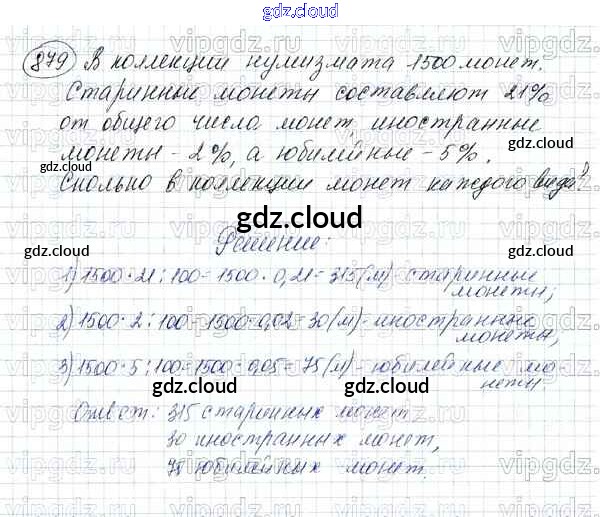 gdz.cloud
879 В коллекции нумизмата 1500 монет.
Старинные монеты составляют 21%
от общего числа монет, иностранные
монеты - 2%, а юбилейные - 5%.
Сколько в коллекции монет каждого вида?
gdz.cloud
Решение:
1) 1500 · 21 : 100 = 1500 · 0,21 = 315 (м) - старинные
монеты;
2) 1500 · 2 : 100 = 1500 · 0,02 = 30 (м) - иностранные
монеты,
3) 1500 · 5 : 100 = 1500 · 0,05 = 75 (м) - юбилейные мо-
неты
gdz.cloud
Ответ: 315 старинных монет
30 иностранных монет,
75 юбилейных монет.
gdz.cloud